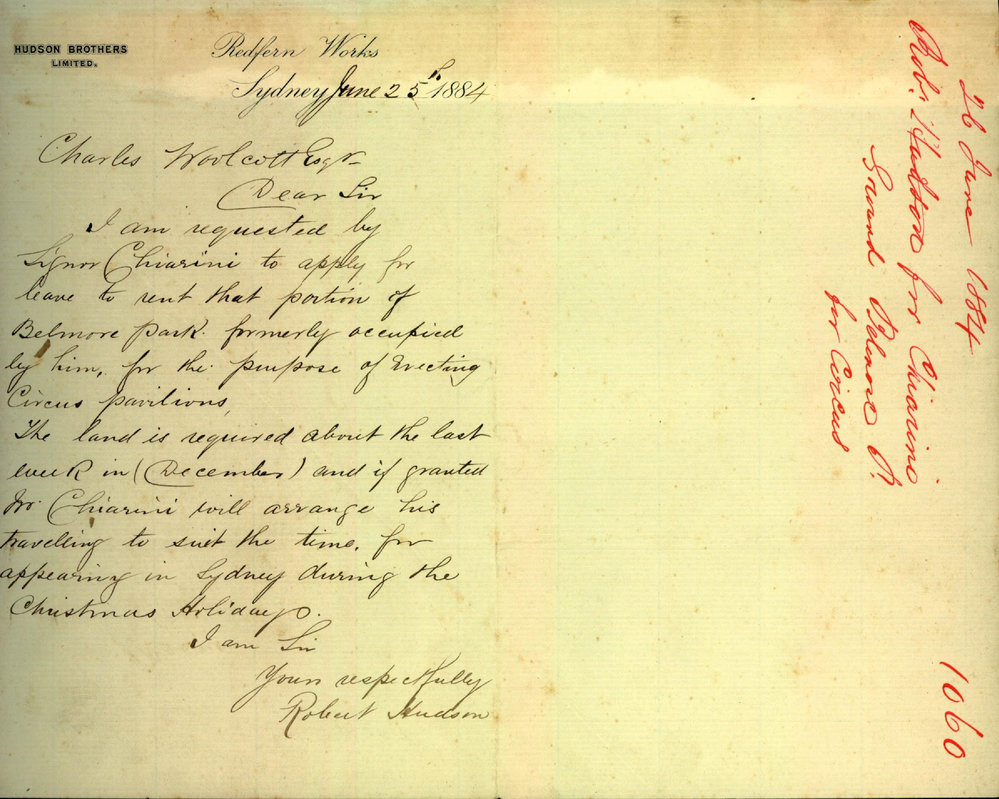 HUDSON BROTHERS
LIMITED.
Redfern Works
Sydney June 25th 1884
Charles Woolcott Esqr
Dear Sir
I am requested by
Signor Chiarini to apply for
leave to rent that portion of
Belmore Park. formerly occupied
by him, for the purpose of Erecting
Circus pavilions,
The land is required about the last
week in (December) and if granted
Mr. Chiarini will arrange his
travelling to suit the time, for
appearing in Sydney during the
Christmas Holidays.
I am Sir
Yours respectfully
Robert Hudson
26 June 1884
Rob. Hudson for Chiarini
Ground Belmore P.
for Circus
1060